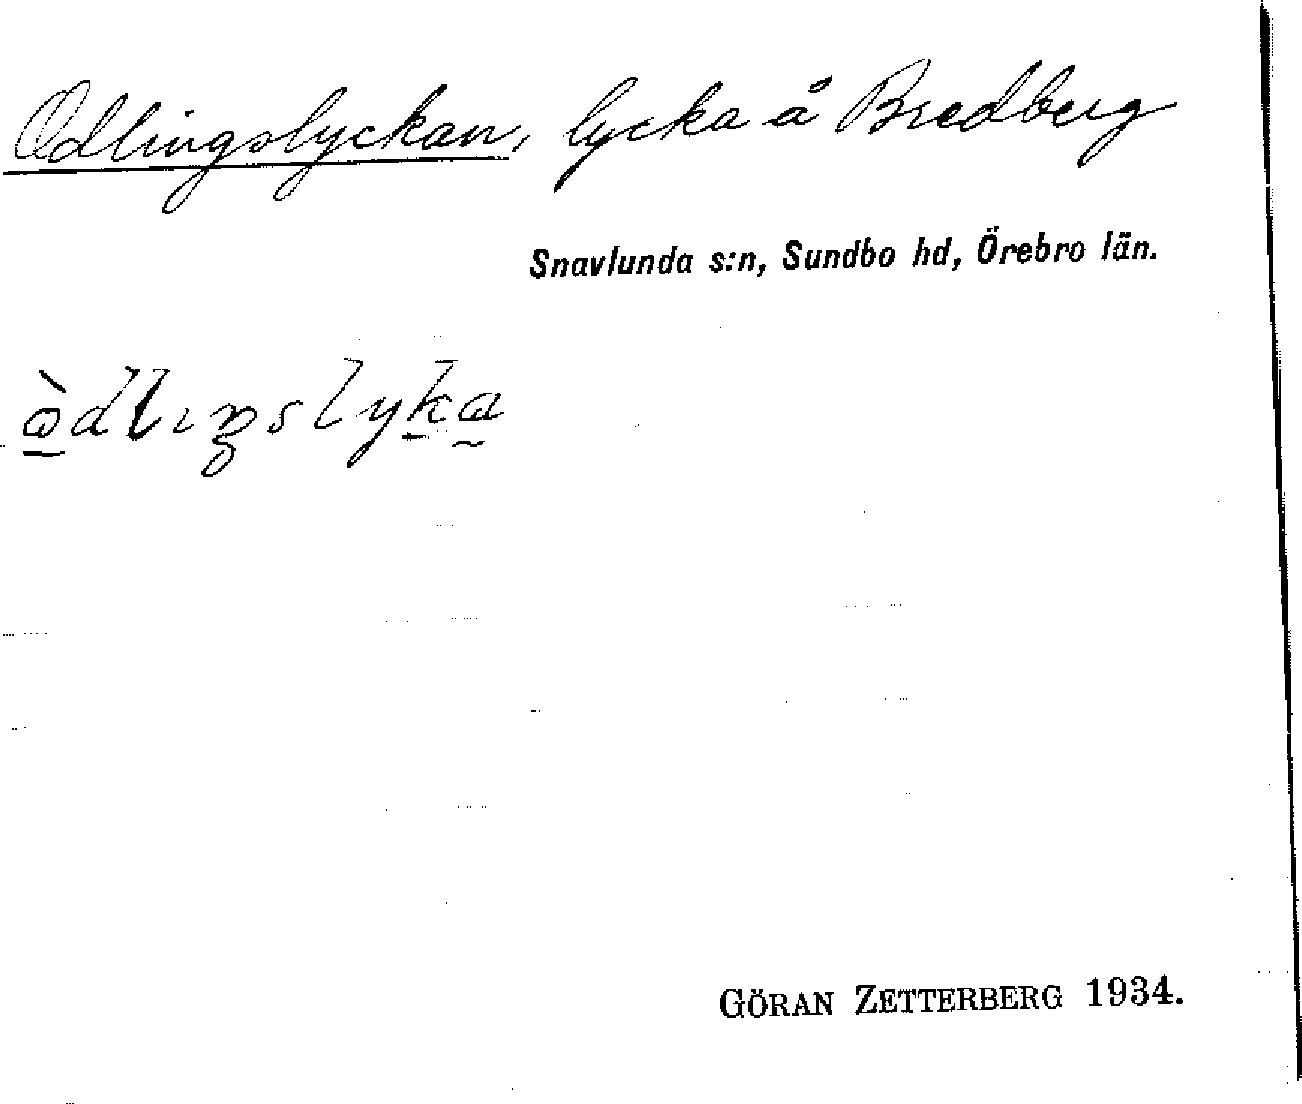 Odlingslyckan, lycka å Bredberg
Snavlunda s:n, Sundbo hd, Örebro län.
GÖRAN ZETTERBERG 1934.